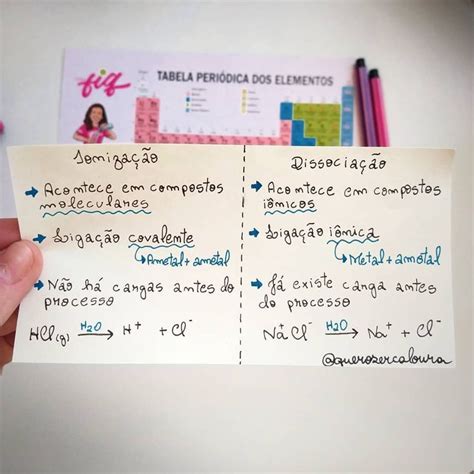 fig
TABELA PERIÓDICA DOS ELEMENTOS
Ionização
→ Acontece em compostos
moleculares
→ Ligação covalente
↳ Ametal + ametal
→ Não há cargas antes do
processo
HCl(g) —H2O→ H+ + Cl-
Dissociação
→ Acontece em compostos
iônicos
→ Ligação iônica
↳ Metal + ametal
→ Já existe carga antes
do processo
Na+Cl- —H2O→ Na+ + Cl-
@querosercaloura